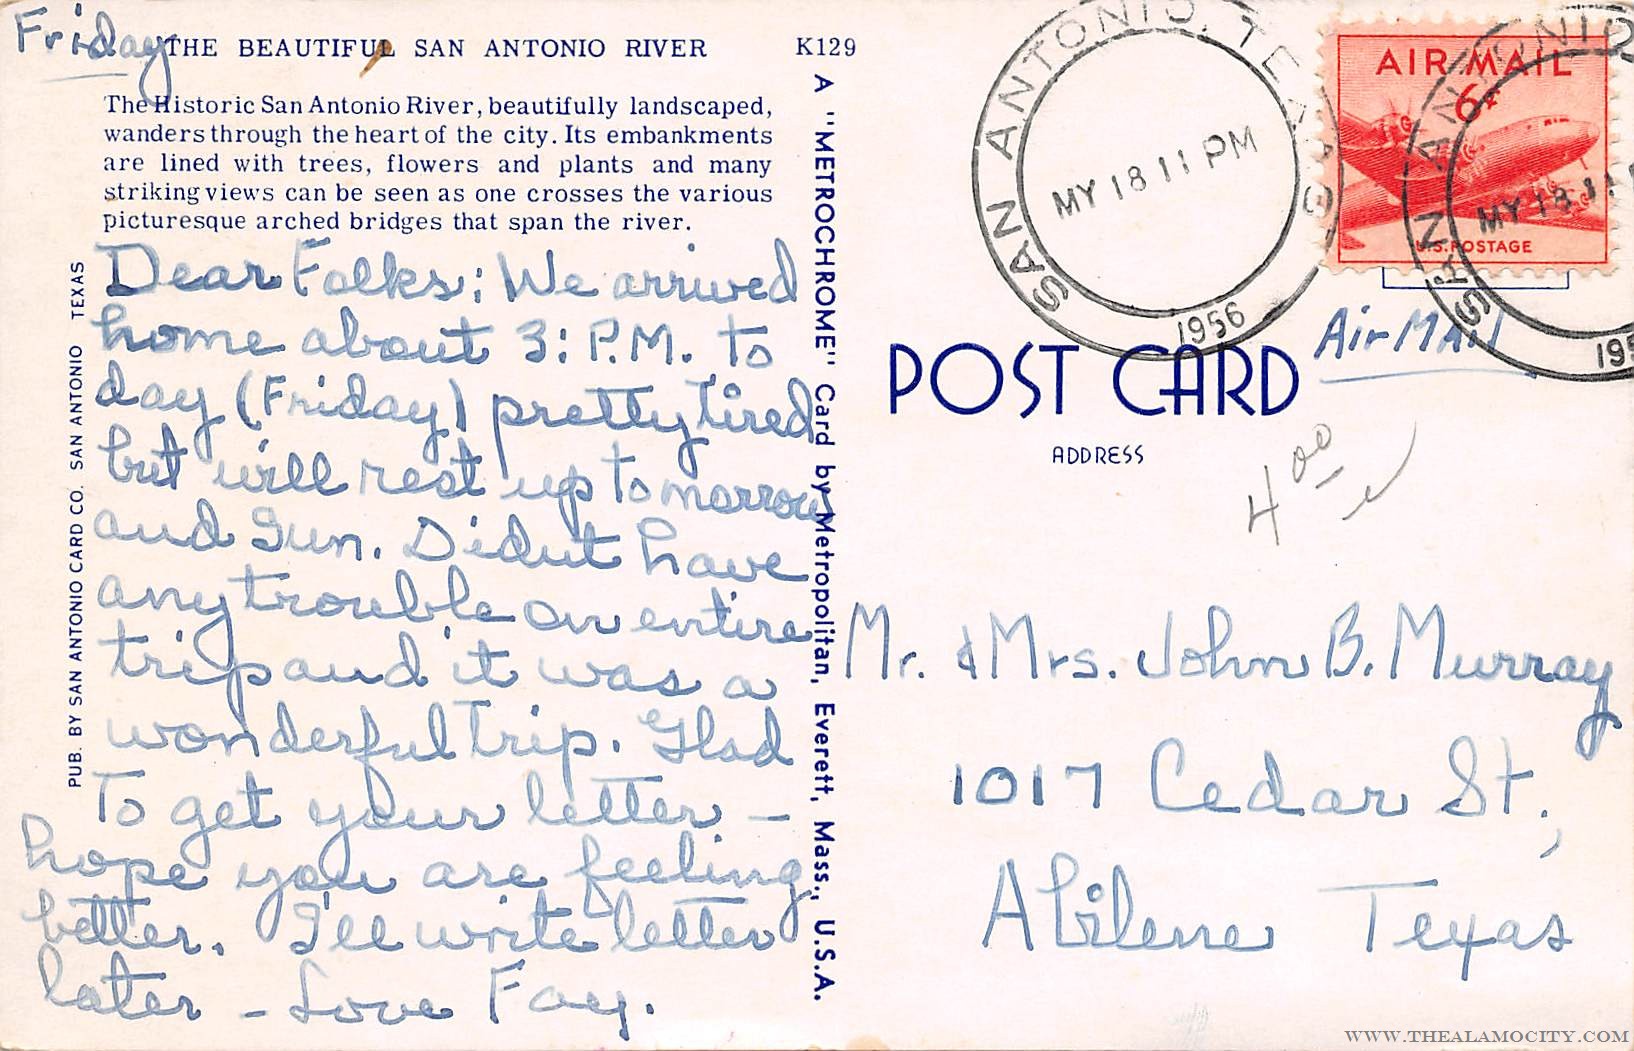 Friday
THE BEAUTIFUL SAN ANTONIO RIVER
K129
The Historic San Antonio River, beautifully landscaped,
wanders through the heart of the city. Its embankments
are lined with trees, flowers and plants and many
striking views can be seen as one crosses the various
picturesque arched bridges that span the river.
Dear Folks: We arrived
home about 3: P.M. to
day (Friday) pretty tired
but will rest up tomorrow
and Sun. Didnt have
any trouble on entire
trip and it was a
wonderful trip. Glad
to get your letter –
hope you are feeling
better. I'll write letter
later – Love Fay.
PUB. BY SAN ANTONIO CARD CO. SAN ANTONIO TEXAS
A "METROCHROME" Card by Metropolitan, Everett, Mass., U.S.A.
SAN ANTONIO, TEXAS
MY 18 11 PM
1956
AIR MAIL
6¢
U.S. POSTAGE
SAN ANTONIO,
MY 18 11
195
Air Mail
POST CARD
ADDRESS
4 00
Mr. & Mrs. John B. Murray
1017 Cedar St.,
Abilene Texas
WWW.THEALAMOCITY.COM